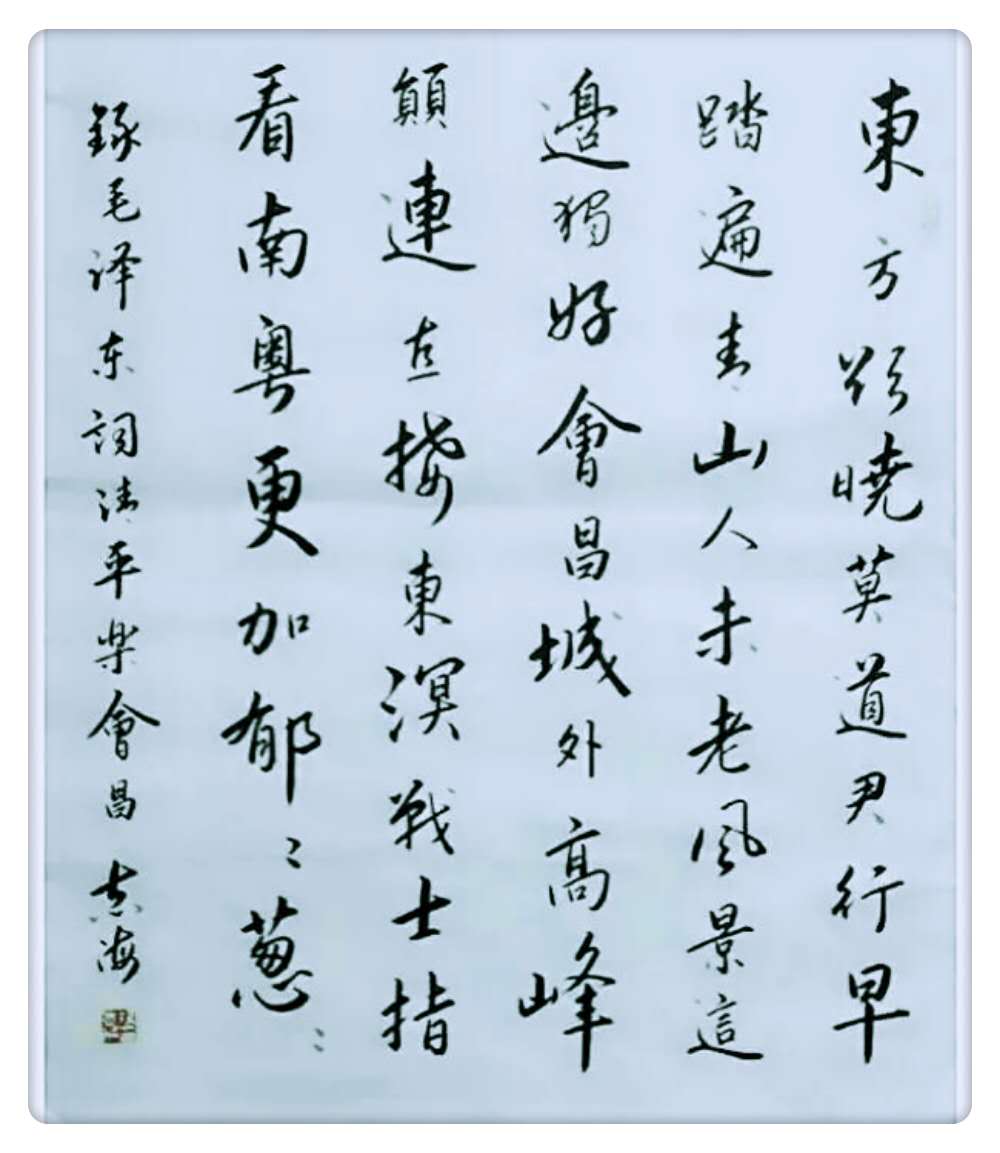 東方欲暁莫道君行早
踏遍青山人未老風景這
邊獨好會昌城外高峰
顛連直接東溟戦士指
看南粵更加郁〻葱〻
錄毛泽东詞清平楽會昌 志海